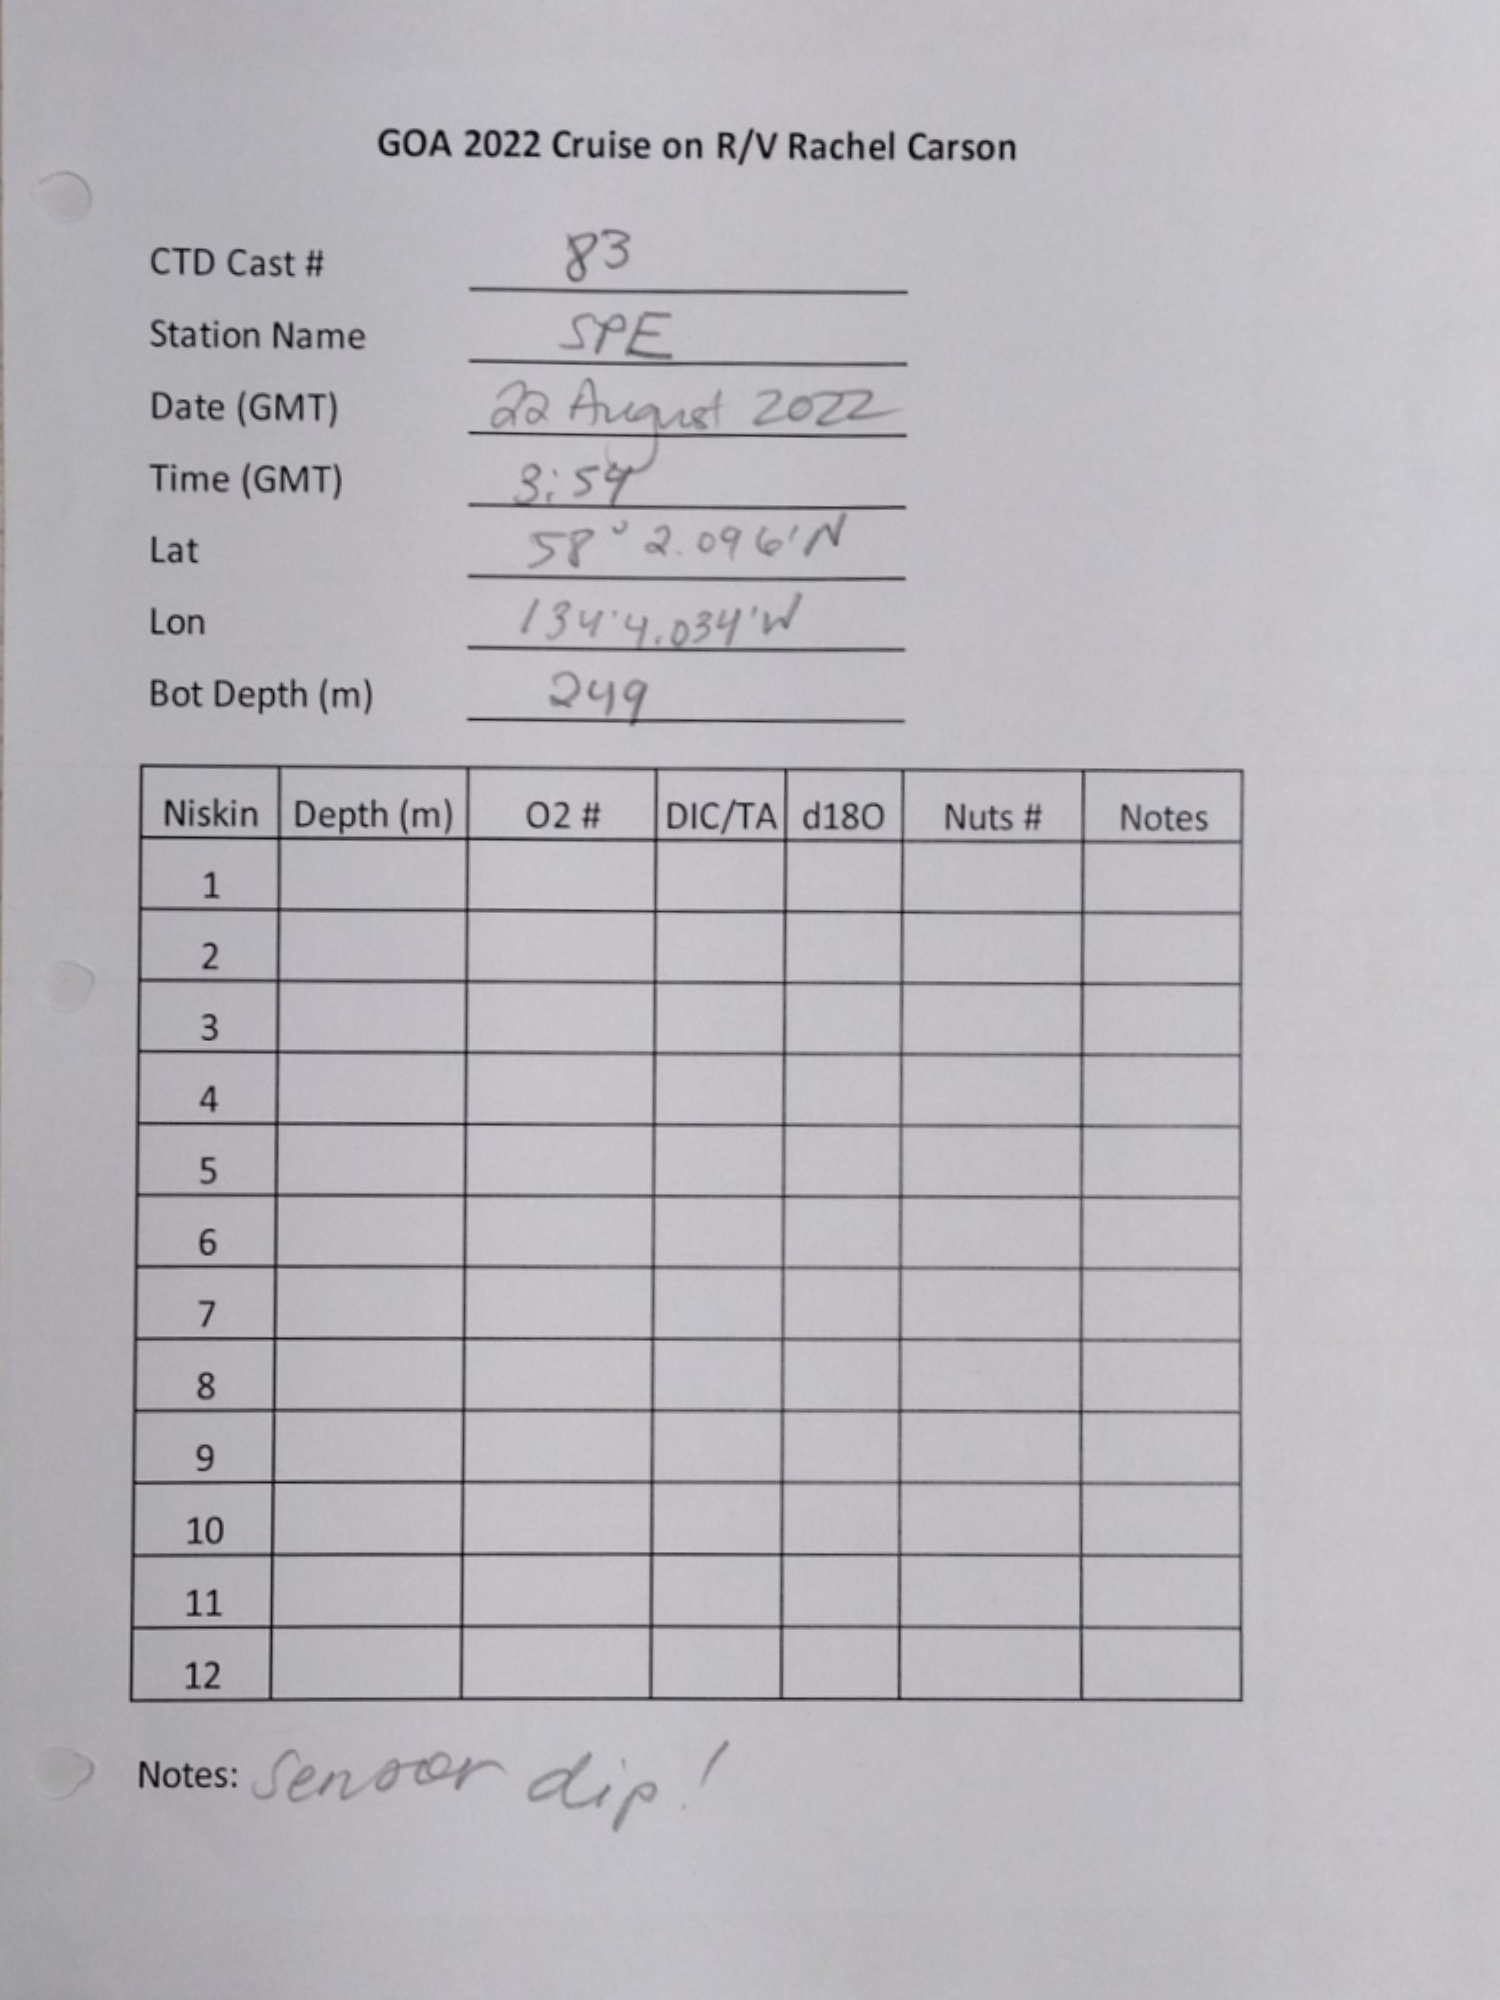 GOA 2022 Cruise on R/V Rachel Carson
CTD Cast # 83
Station Name SPE
Date (GMT) 22 August 2022
Time (GMT) 3:54
Lat 58° 2.096'N
Lon 134°4.034'W
Bot Depth (m) 249
Niskin Depth (m) O2 # DIC/TA d18O Nuts # Notes
1
2
3
4
5
6
7
8
9
10
11
12
Notes: Sensor dip!